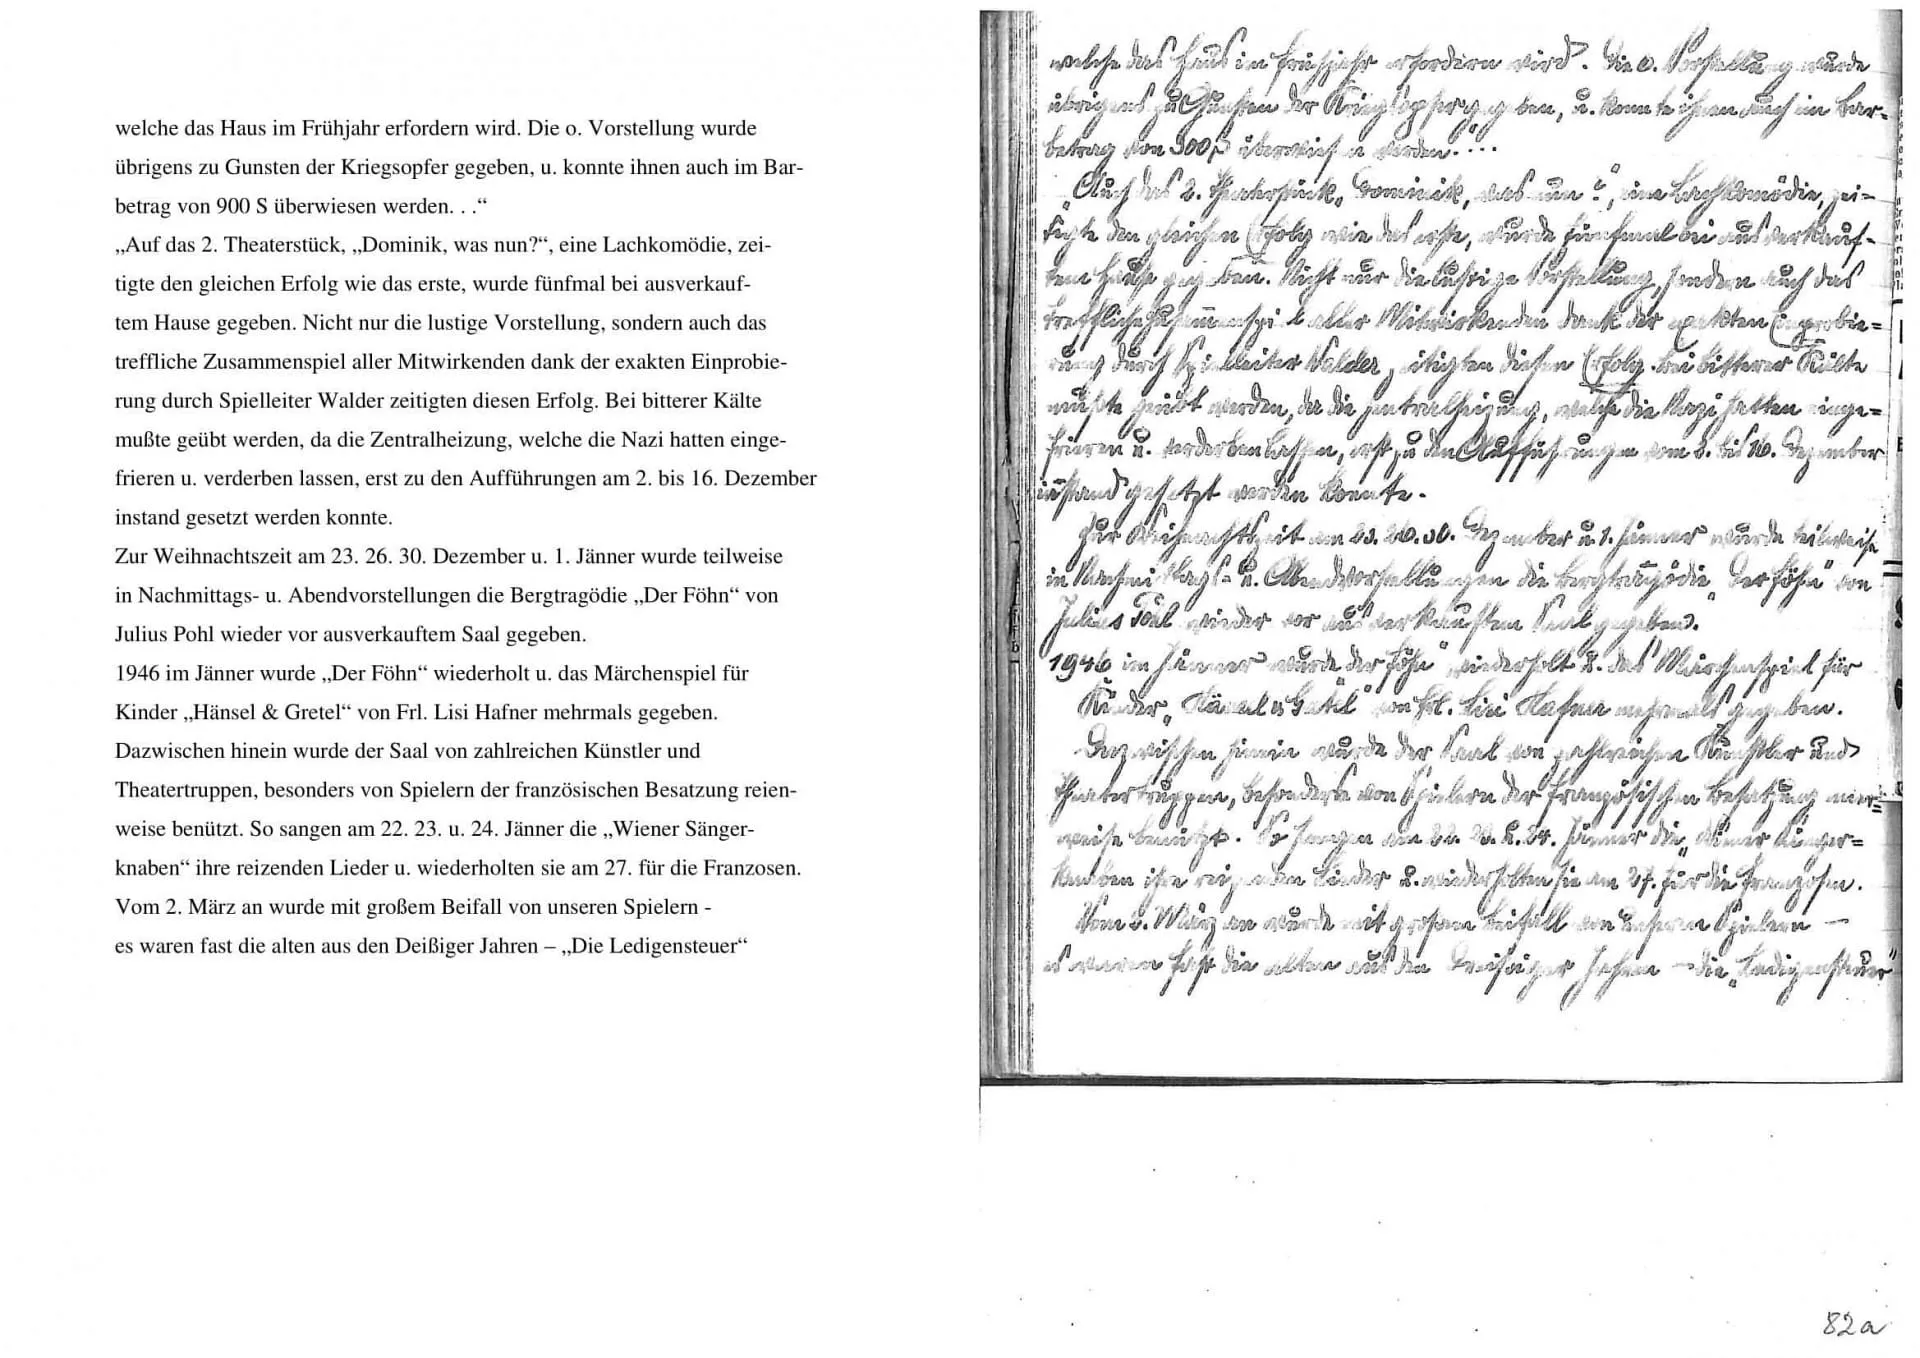 welche das Haus im Frühjahr erfordern wird. Die o. Vorstellung wurde
übrigens zu Gunsten der Kriegsopfer gegeben, u. konnte ihnen auch im Bar-
betrag von 900 S überwiesen werden. . .“
„Auf das 2. Theaterstück, „Dominik, was nun?“, eine Lachkomödie, zei-
tigte den gleichen Erfolg wie das erste, wurde fünfmal bei ausverkauf-
tem Hause gegeben. Nicht nur die lustige Vorstellung, sondern auch das
treffliche Zusammenspiel aller Mitwirkenden dank der exakten Einprobie-
rung durch Spielleiter Walder zeitigten diesen Erfolg. Bei bitterer Kälte
mußte geübt werden, da die Zentralheizung, welche die Nazi hatten einge-
frieren u. verderben lassen, erst zu den Aufführungen am 2. bis 16. Dezember
instand gesetzt werden konnte.
Zur Weihnachtszeit am 23. 26. 30. Dezember u. 1. Jänner wurde teilweise
in Nachmittags- u. Abendvorstellungen die Bergtragödie „Der Föhn“ von
Julius Pohl wieder vor ausverkauftem Saal gegeben.
1946 im Jänner wurde „Der Föhn“ wiederholt u. das Märchenspiel für
Kinder „Hänsel & Gretel“ von Frl. Lisi Hafner mehrmals gegeben.
Dazwischen hinein wurde der Saal von zahlreichen Künstler und
Theatertruppen, besonders von Spielern der französischen Besatzung reien-
weise benützt. So sangen am 22. 23. u. 24. Jänner die „Wiener Sänger-
knaben“ ihre reizenden Lieder u. wiederholten sie am 27. für die Franzosen.
Vom 2. März an wurde mit großem Beifall von unseren Spielern -
es waren fast die alten aus den Deißiger Jahren – „Die Ledigensteuer“
welche das Haus im Frühjahr erfordern wird. Die o. Vorstellung wurde
übrigens zu Gunsten der Kriegsopfer gegeben, u. konnte ihnen auch im Bar-
betrag von 900 S überwiesen werden. . . .
„Auch das 2. Theaterstück, „Dominik, was nun?“, eine Lachkomödie, zei=
tigte den gleichen Erfolg wie das erste, wurde fünfmal bei ausverkauf=
tem Hause gegeben. Nicht nur die lustige Vorstellung, sondern auch das
treffliche Zusammenspiel aller Mitwirkenden dank der exakten Einprobie=
rung durch Spielleiter Walder zeitigten diesen Erfolg. Bei bitterer Kälte
mußte geübt werden, da die Zentralheizung, welche die Nazi hatten einge=
frieren u. verderben lassen, erst zu den Aufführungen vom 2. bis 16. Dezember
instand gesetzt werden konnte.
Zur Weihnachtszeit am 23. 26. 30. Dezember u. 1. Jänner wurde teilweise
in Nachmittags- u. Abendvorstellungen die Bergtragödie „Der Föhn“ von
Julius Pohl wieder vor ausverkauftem Saal gegeben.
1946 im Jänner wurde „der Föhn“ wiederholt u. das Märchenspiel für
Kinder „Hänsel u Gretel“ von Frl. Lisi Hafner mehrmals gegeben.
Dazwischen hinein wurde der Saal von zahlreichen Künstler und
Theatertruppen, besonders von Spielern der französischen Besatzung
weise benützt. So sangen am 22. 23. u. 24. Jänner die „Wiener Sänger=
knaben ihre reizenden Lieder u. wiederholten sie am 27. für die Franzosen.
Vom 2. März an wurde mit großem Beifall von unseren Spielern —
es waren fast die alten aus den Dreißiger Jahren — die „Ledigensteuer“
82a